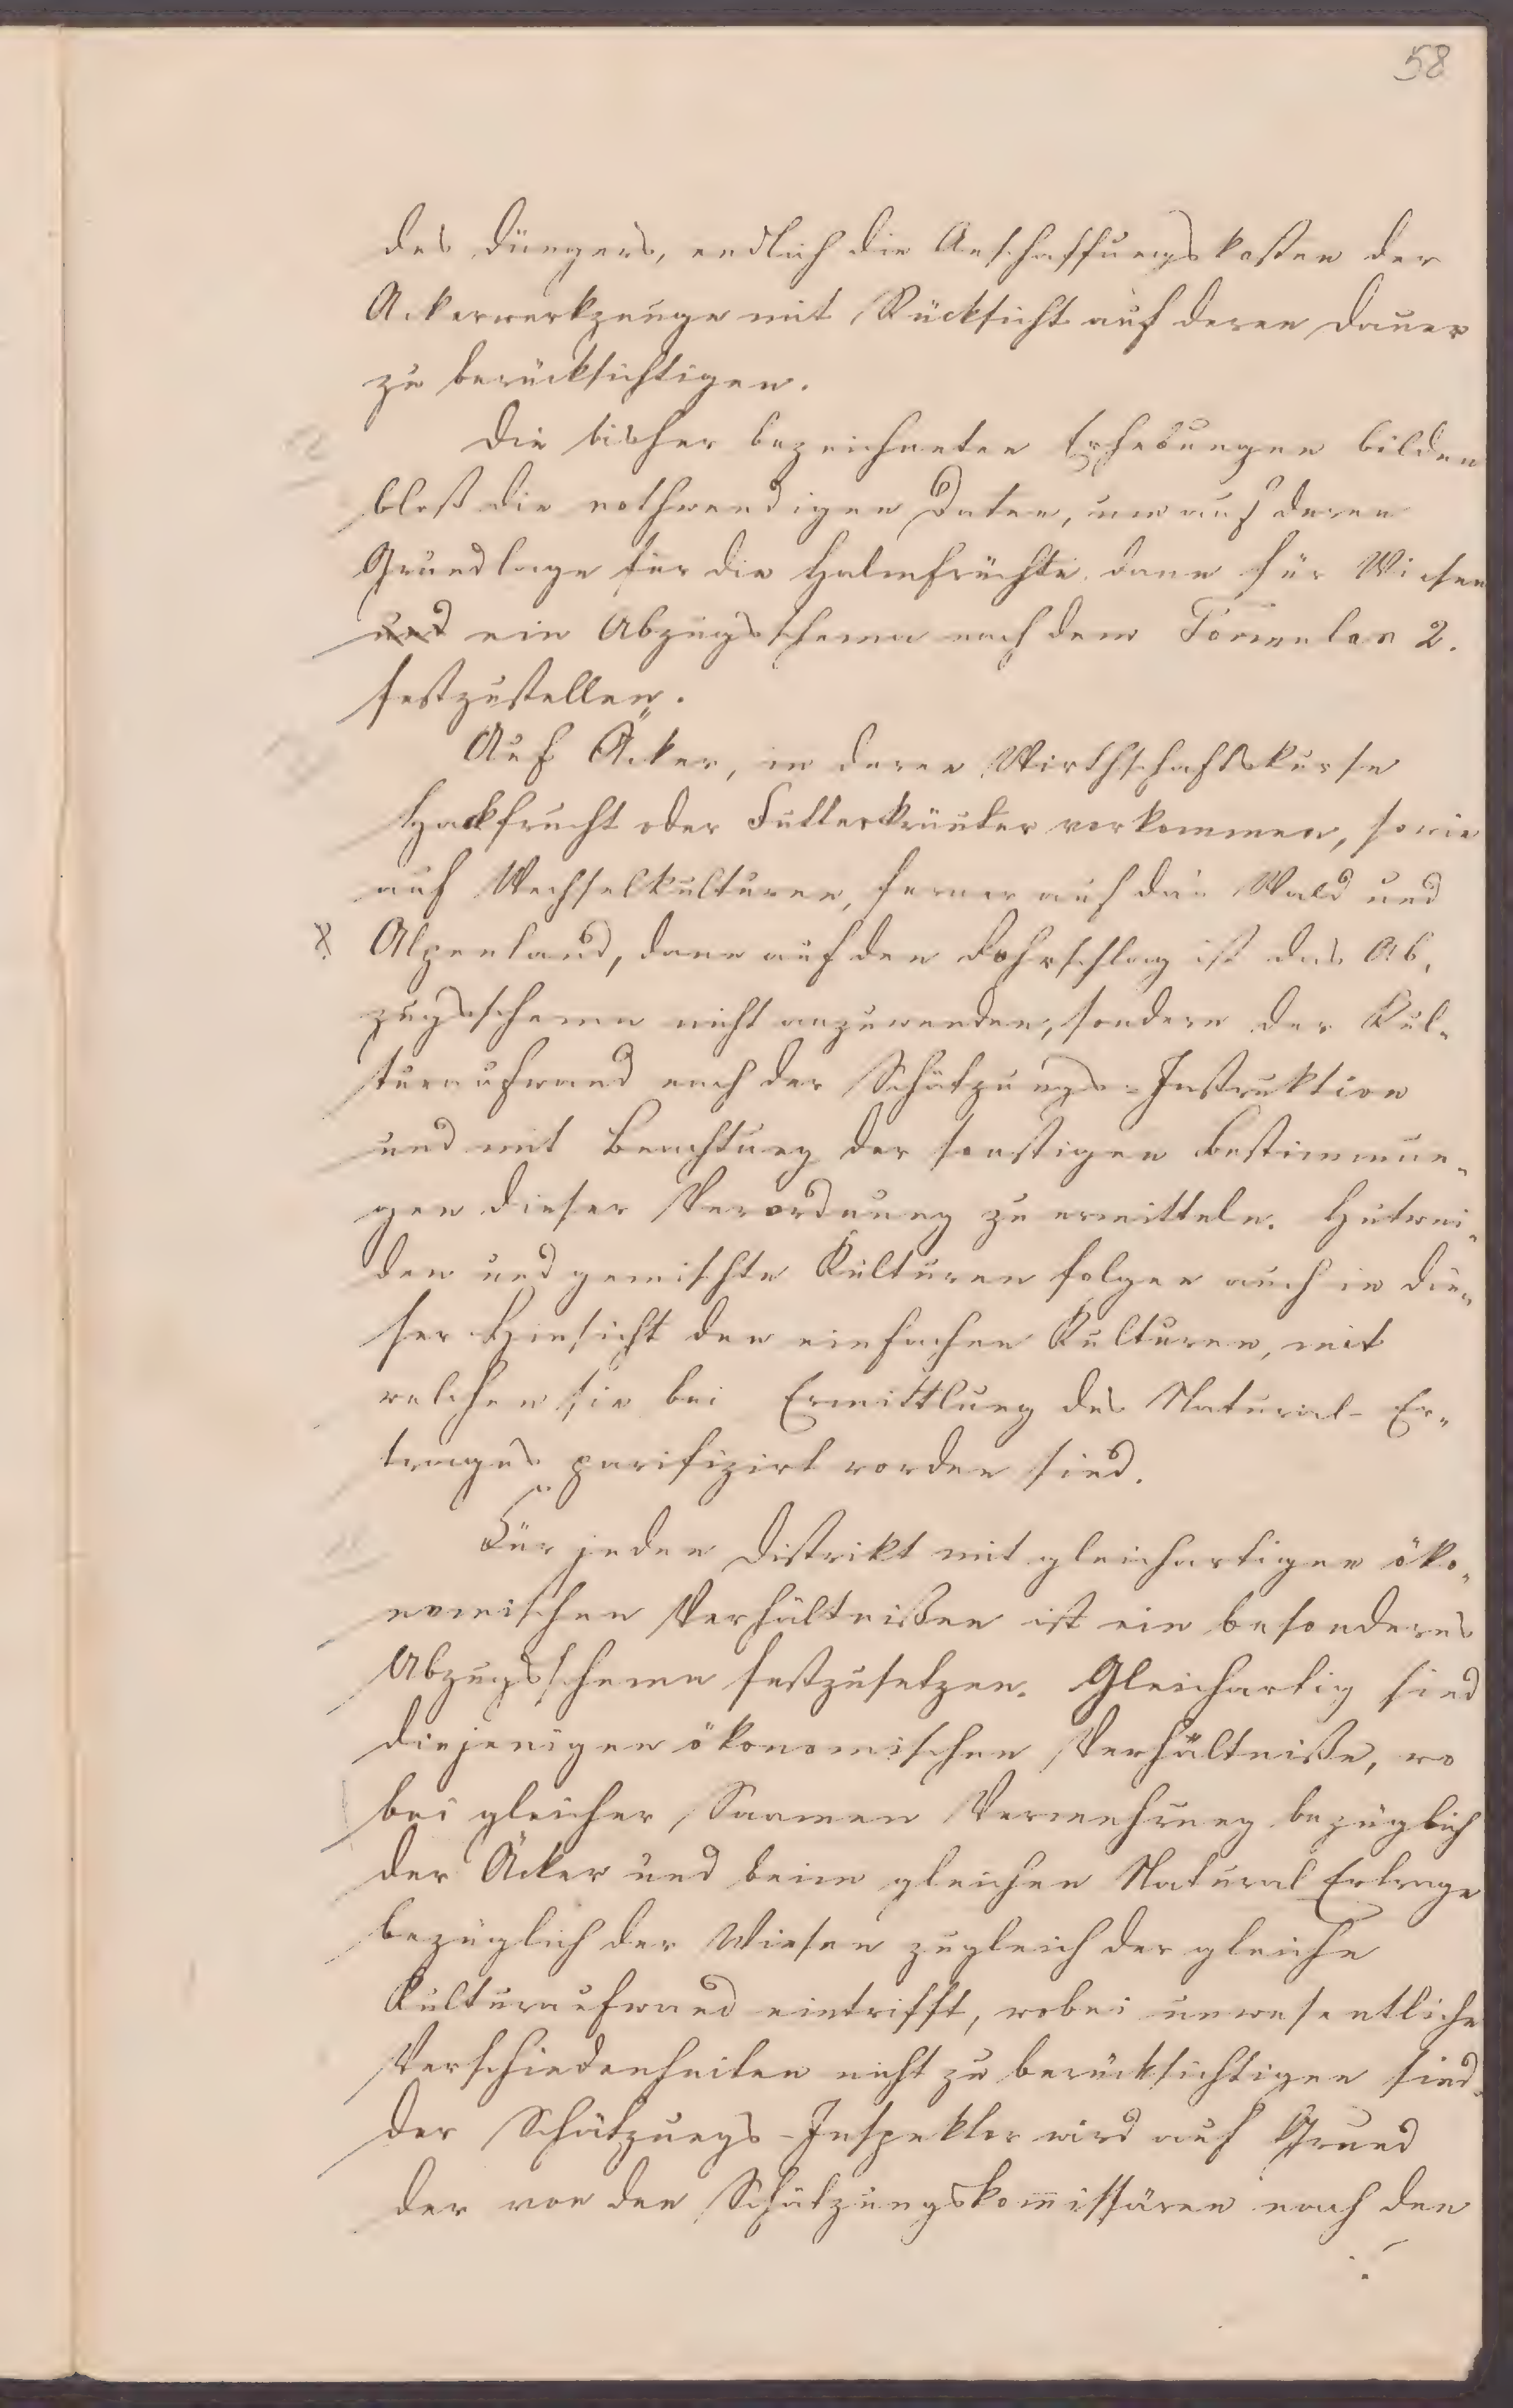 58
des Düngers, endlich die Anschaffungskosten der
Ackerwerkzeuge mit Rücksicht auf deren Dauer
zu berücksichtigen.
Die bisher bezeichneten Erhebungen bilden
bloß die nothwendigen Daten, um auf deren
Grundlage für die Halmfrüchte, dann für Wiesen
und ein Abzugsschema nach dem Formular 2.
festzustellen.
Auf Äcker, in deren Wirthschaftskurse
Hackfrucht oder Futterkräuter vorkommen, sowie
auf Wechselkulturen, ferner auf das Wald und
Alpenland, dann auf den Rohrschlag ist das Ab,
zugsschema nicht anzuwenden, sondern der Kul-
turaufwand nach der Schätzungs-Instruktion
und mit Beachtung der sonstigen Bestimmun-
gen dieser Verordnung zu ermitteln. Hutwei-
den und gemischte Kulturen folgen auch in die-
ser Hinsicht den einfachen Kulturen, mit
welchen sie bei Ermittlung des Natural-Er-
trages parifizirt worden sind.
Für jeden Distrikt mit gleichartigen öko-
nomischen Verhältnißen ist ein besonderes
Abzugsschema festzusetzen. Gleichartig sind
diejenigen ökonomischen Verhältniße, wo
bei gleicher Saamen Vermehrung bezüglich
der Äcker und beim gleichen Natural Ertrage
bezüglich der Wiesen zugleich der gleiche
Kulturaufwand eintrifft, wobei unwesentliche
Verschiedenheiten nicht zu berücksichtigen sind.
Der Schätzungs-Inspektor wird auf Grund
der von den Schätzungskom̅issären nach den